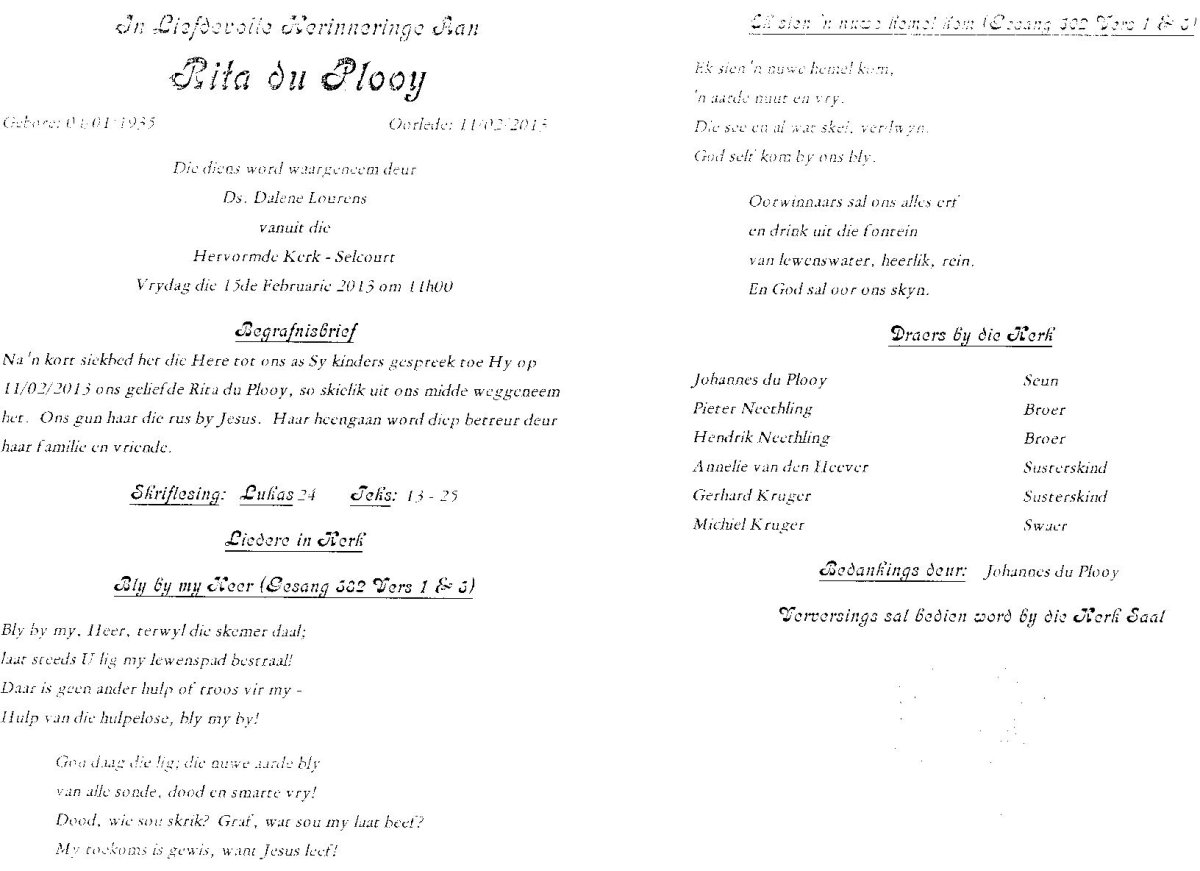 In Liefdevolle Herinneringe Aan
Rita du Plooy
Gebore: 04/01/1935 Oorlede: 11/02/2013
Die diens word waargeneem deur
Ds. Dalene Lourens
vanuit die
Hervormde Kerk - Selcourt
Vrydag die 15de Februarie 2013 om 11h00
Begrafnisbrief
Na 'n kort siekbed het die Here tot ons as Sy kinders gespreek toe Hy op
11/02/2013 ons geliefde Rita du Plooy, so skielik uit ons midde weggeneem
het. Ons gun haar die rus by Jesus. Haar heengaan word diep betreur deur
haar familie en vriende.
Skriflesing: Lukas 24 Teks: 13 - 25
Liedere in Kerk
Bly by my Heer (Gesang 382 Vers 1 & 3)
Bly by my, Heer, terwyl die skemer daal;
laat steeds U lig my lewenspad bestraal!
Daar is geen ander hulp of troos vir my -
Hulp van die hulpelose, bly my by!
Gou daag die lig; die nuwe aarde bly
van alle sonde, dood en smarte vry!
Dood, wie sou skrik? Graf, wat sou my laat beef?
My toekoms is gewis, want Jesus leef!
Ek sien 'n nuwe hemel kom (Gesang 302 Vers 1 & 3)
Ek sien 'n nuwe hemel kom,
'n aarde nuut en vry.
Die see en al wat skei, verdwyn.
God self kom by ons bly.
Oorwinnaars sal ons alles erf
en drink uit die fontein
van lewenswater, heerlik, rein.
En God sal oor ons skyn.
Draers by die Kerk
Johannes du Plooy Seun
Pieter Neethling Broer
Hendrik Neethling Broer
Annelie van den Heever Susterskind
Gerhard Kruger Susterskind
Michiel Kruger Swaer
Bedankings deur: Johannes du Plooy
Verversings sal bedien word by die Kerk Saal